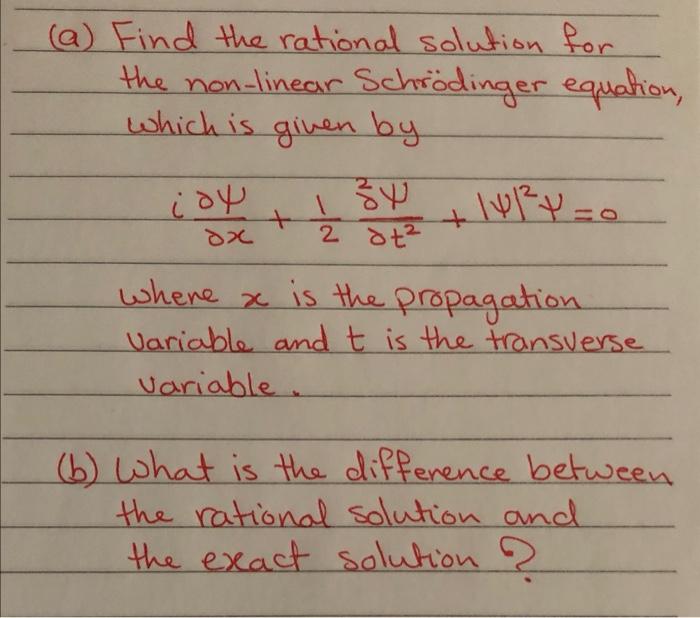 (a) Find the rational solution for
the non-linear Schrödinger equation,
which is given by
i ∂Ψ/∂x + 1/2 ∂²Ψ/∂t² + |Ψ|²Ψ = 0
where x is the propagation
variable and t is the transverse
variable.
(b) What is the difference between
the rational solution and
the exact solution?